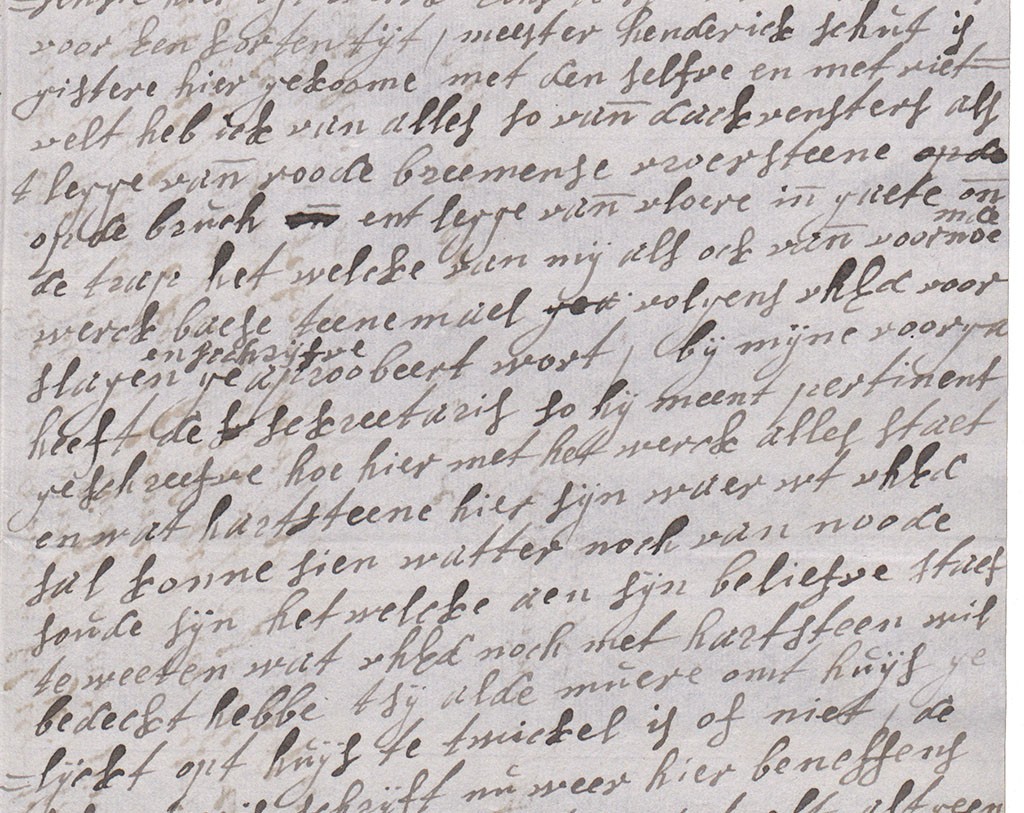 voor een korten tijt, meester henderick schut is
gistere hier gekoome met den selfve en met riet=
velt heb ick van alles so van dackvensters als
t legge van roode breemense vloersteene
op de bruch ent legge van vloere in gaete on
de trap het welcke van mij als ock van voornde
mde
werck baese teenemael volgens uhEd voor
slagen geaproobeert wort, bij mijne voorga
en schrijfve
heeft de sekreetaris so hij meent pertinent
geschreefve hoe hier met het werck alles staet
en wat hartsteene hier sijn waer wt uhEd
sal konne sien watter noch van noode
soude sijn hetwelcke aen sijn beliefve staet
te weeten wat uhEd noch met hartsteen wil
bedeckt hebbe tsij alde muere omt huijs ge
=lijckt opt huijs te twickel is of niet, de
schrijft nu weer hier beneffens